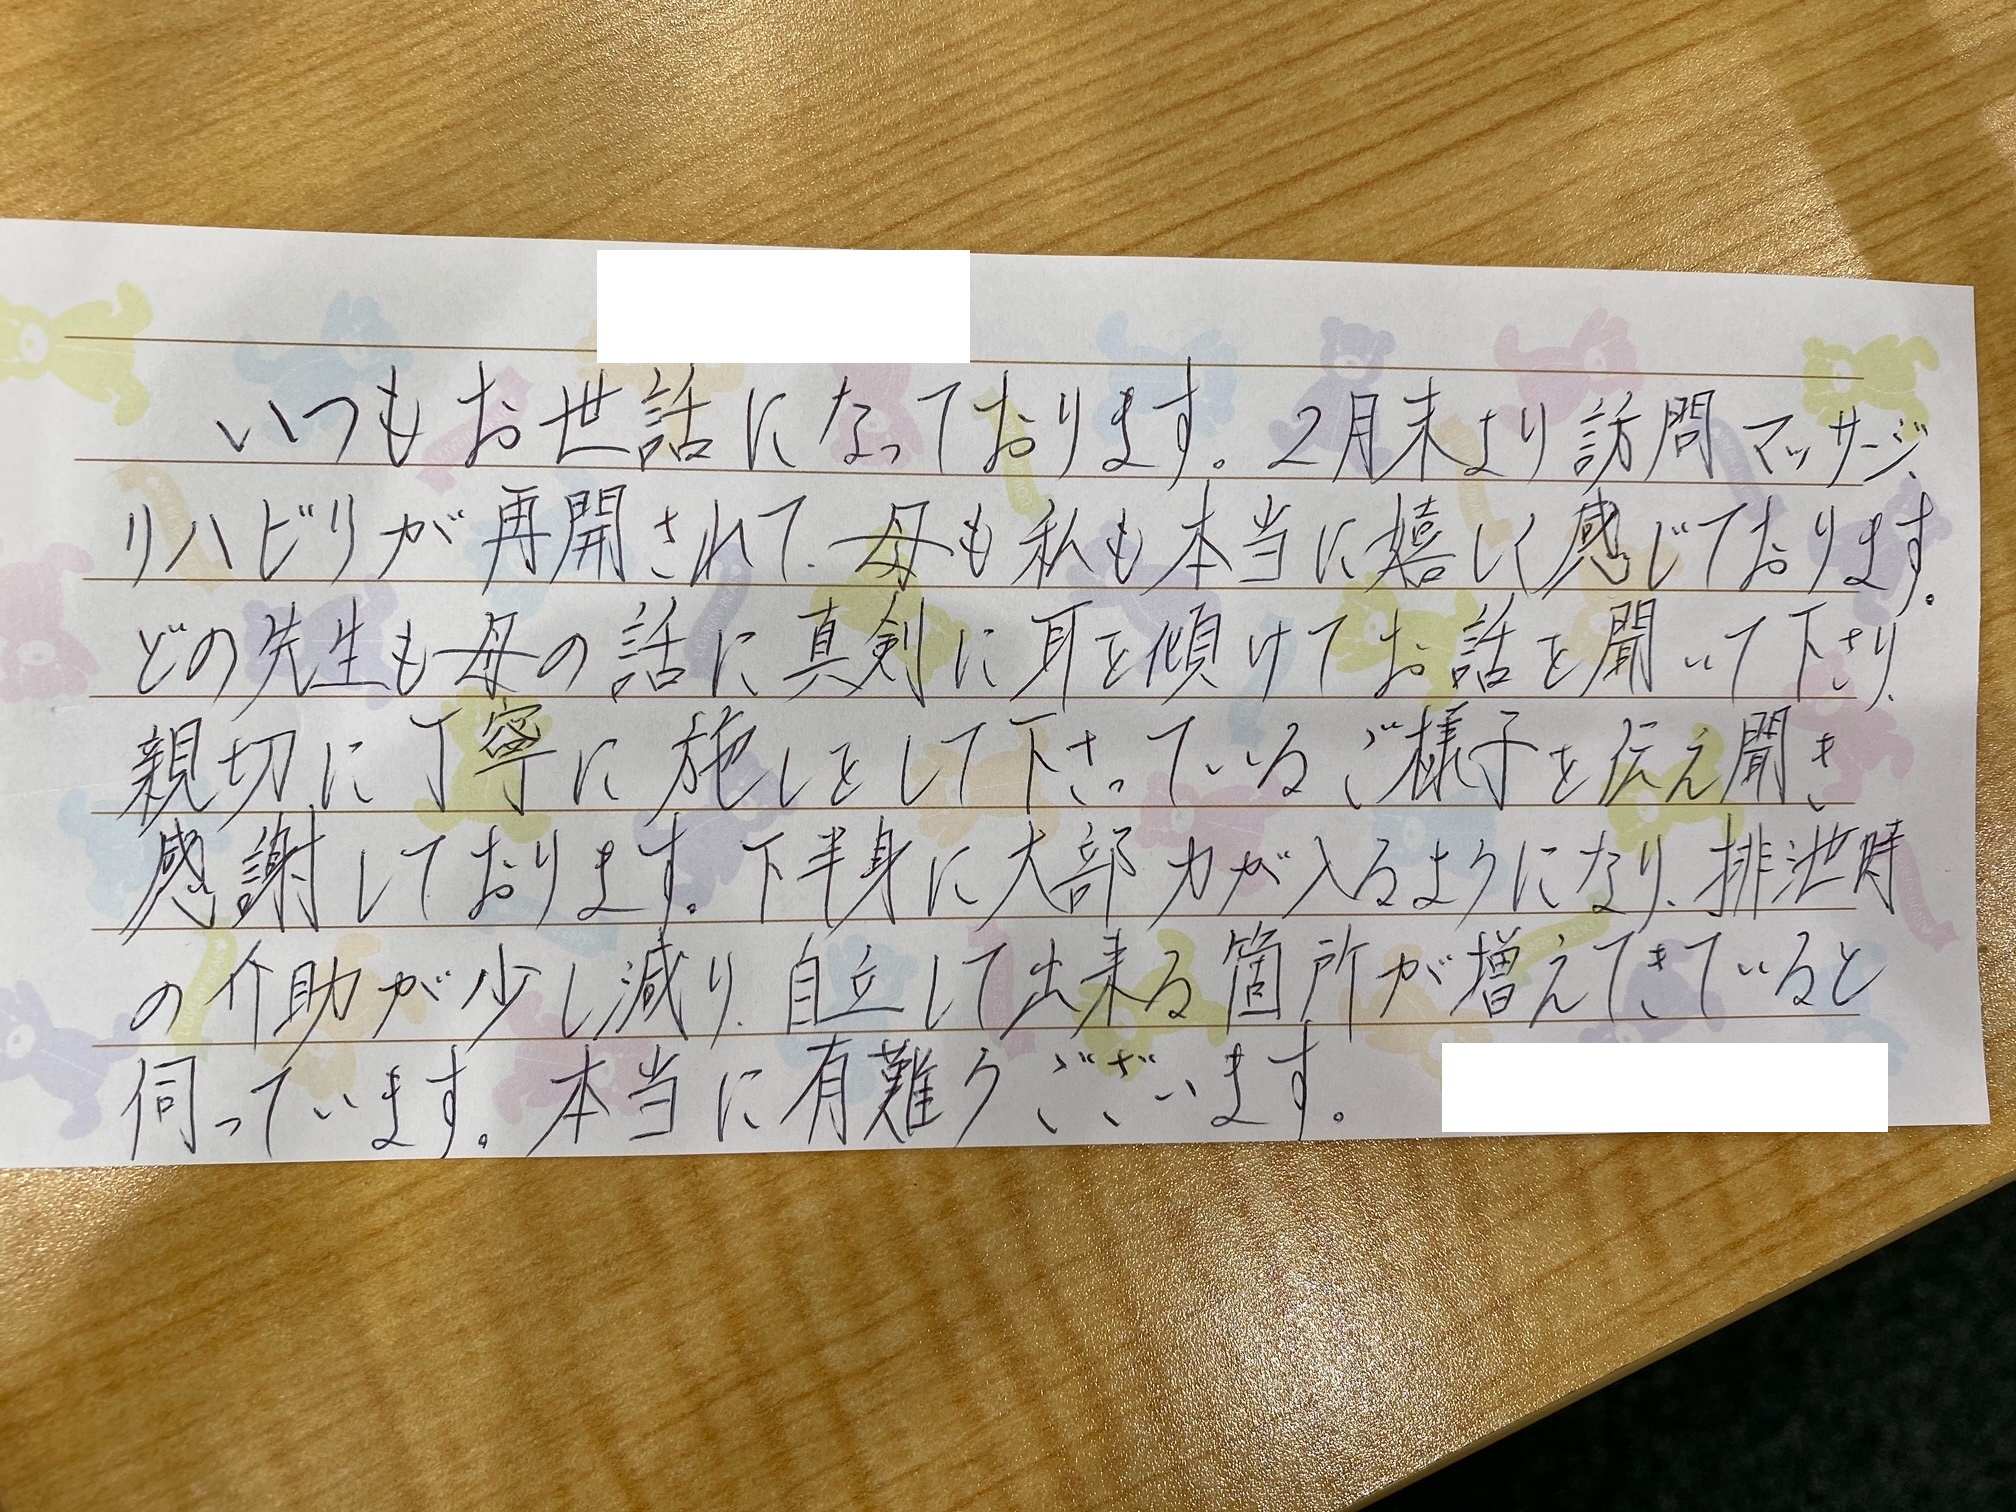 いつもお世話になっております。2月末より訪問マッサージ、
リハビリが再開されて、母も私も本当に嬉しく感じております。
どの先生も母の話に真剣に耳を傾けてお話を聞いて下さり、
親切に丁寧に施しをして下さっているご様子を伝え聞き
感謝しております。下半身に大部力が入るようになり、排泄時
の介助が少し減り、自立して出来る箇所が増えてきていると
伺っています。本当に有難うございます。